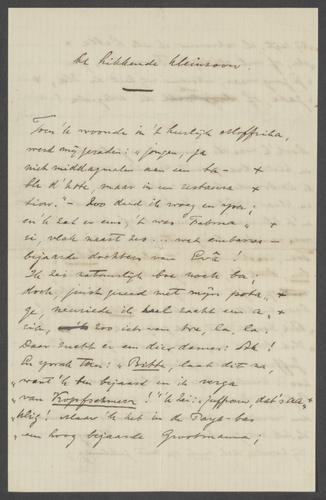 De hikkende kleinzoon.
Toen 'k woonde in 't heerlijk Moffrika,
werd mij geraden: "jongen, ga
niet middagmalen aan een ta- +
ble d'hôte, maar in een restaura +
tion". – Zoo deed ik vroeg en
en 'k zat er eens, 't was "Februa" +
ri, vlak naast zes ... welembarres-
bejaarde dochters van Eva!
Ik zei natuurlijk boe noch ba;
doch, juist gereed met mijn pota- +
ge, neuriede ik heel zacht een a +
ria, zoo iets van tra, la, la.
Daar zucht er een dier dames: Ah!
En sprak toen: "Bitte, laat dit na,
"want 'k ben bejaard en ik verga
"van Kopfschmerz!" 'k Zei: "Juffrouw, dat's kla +
"glig! Maar 'k het in de Pays-bas
"een hoog bejaarde Grootmama;